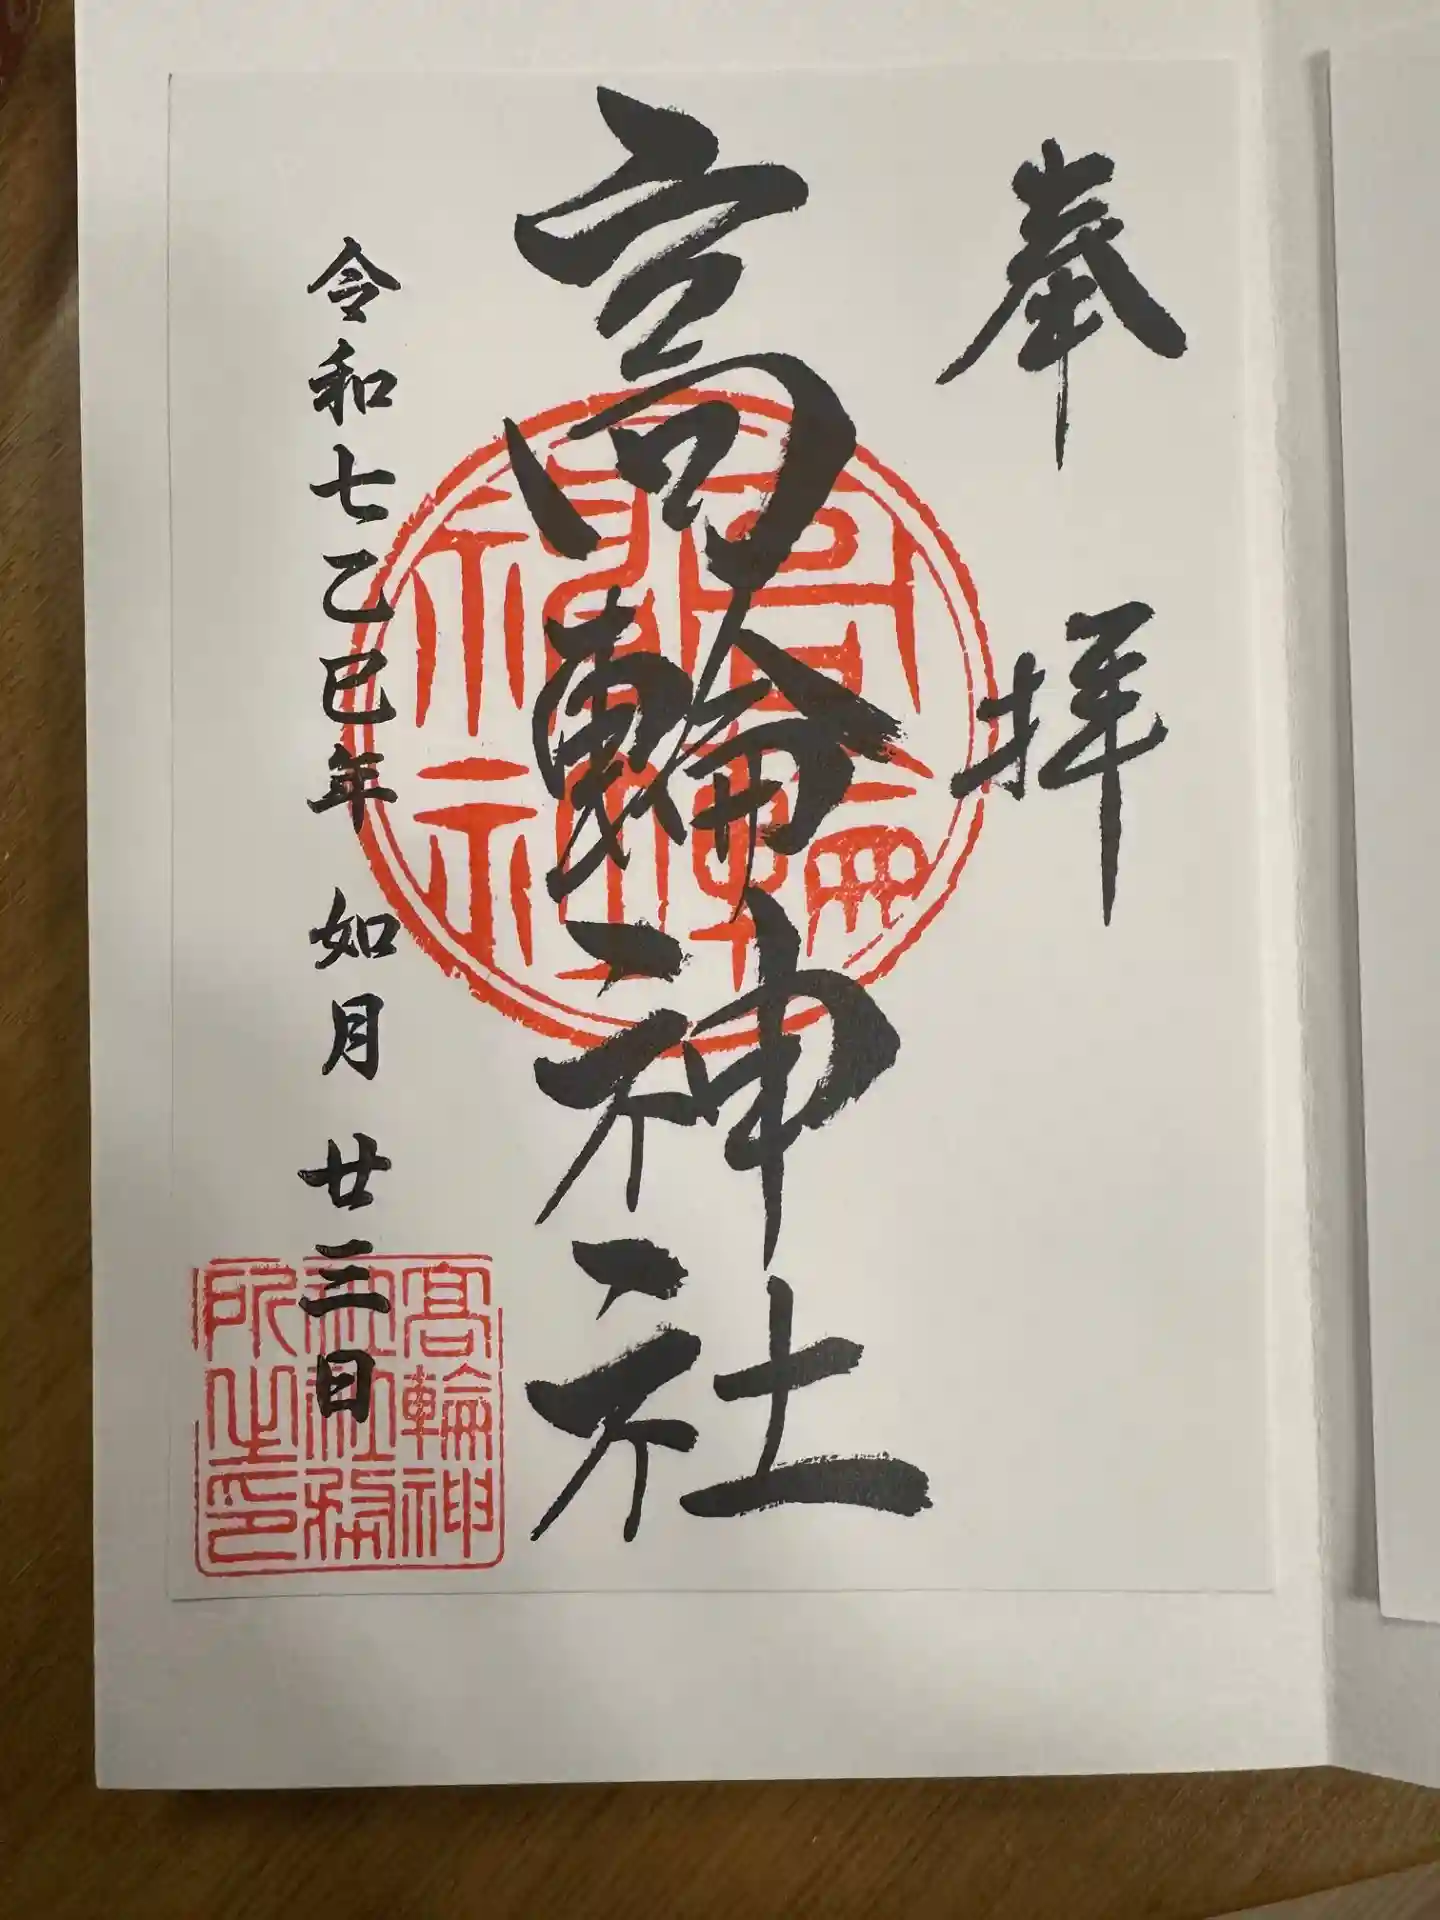 奉拝
高輪神社
令和七乙巳年 如月 廿三日
高輪神社
高輪神
社社務
所之印